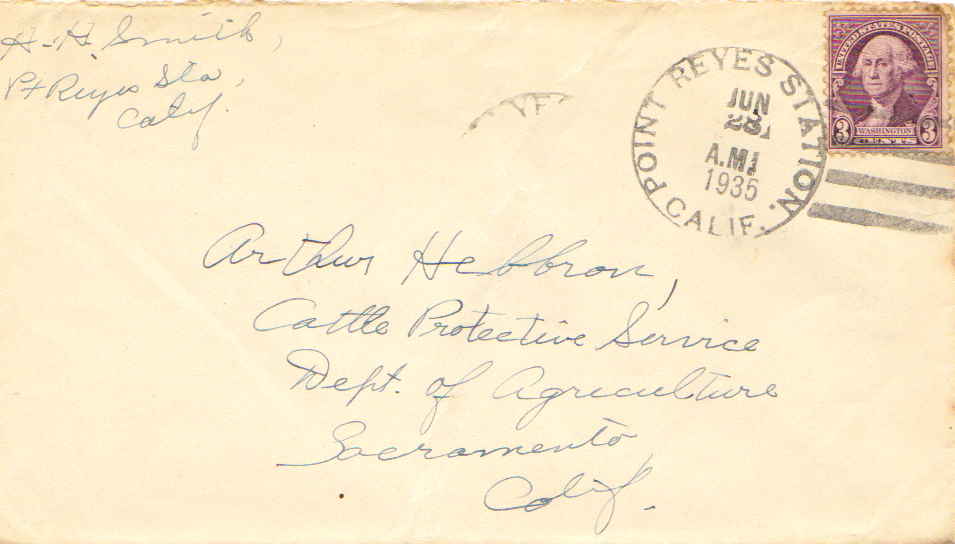 H. H. Smith,
Pt Reyes Sta,
Calif.
POINT REYES STATION.
CALIF.
JUN
28
A.M
1935
UNITED STATES POSTAGE
3 WASHINGTON 3
CENTS
Arthur Hebbron,
Cattle Protective Service
Dept. of Agriculture
Sacramento
Calif.